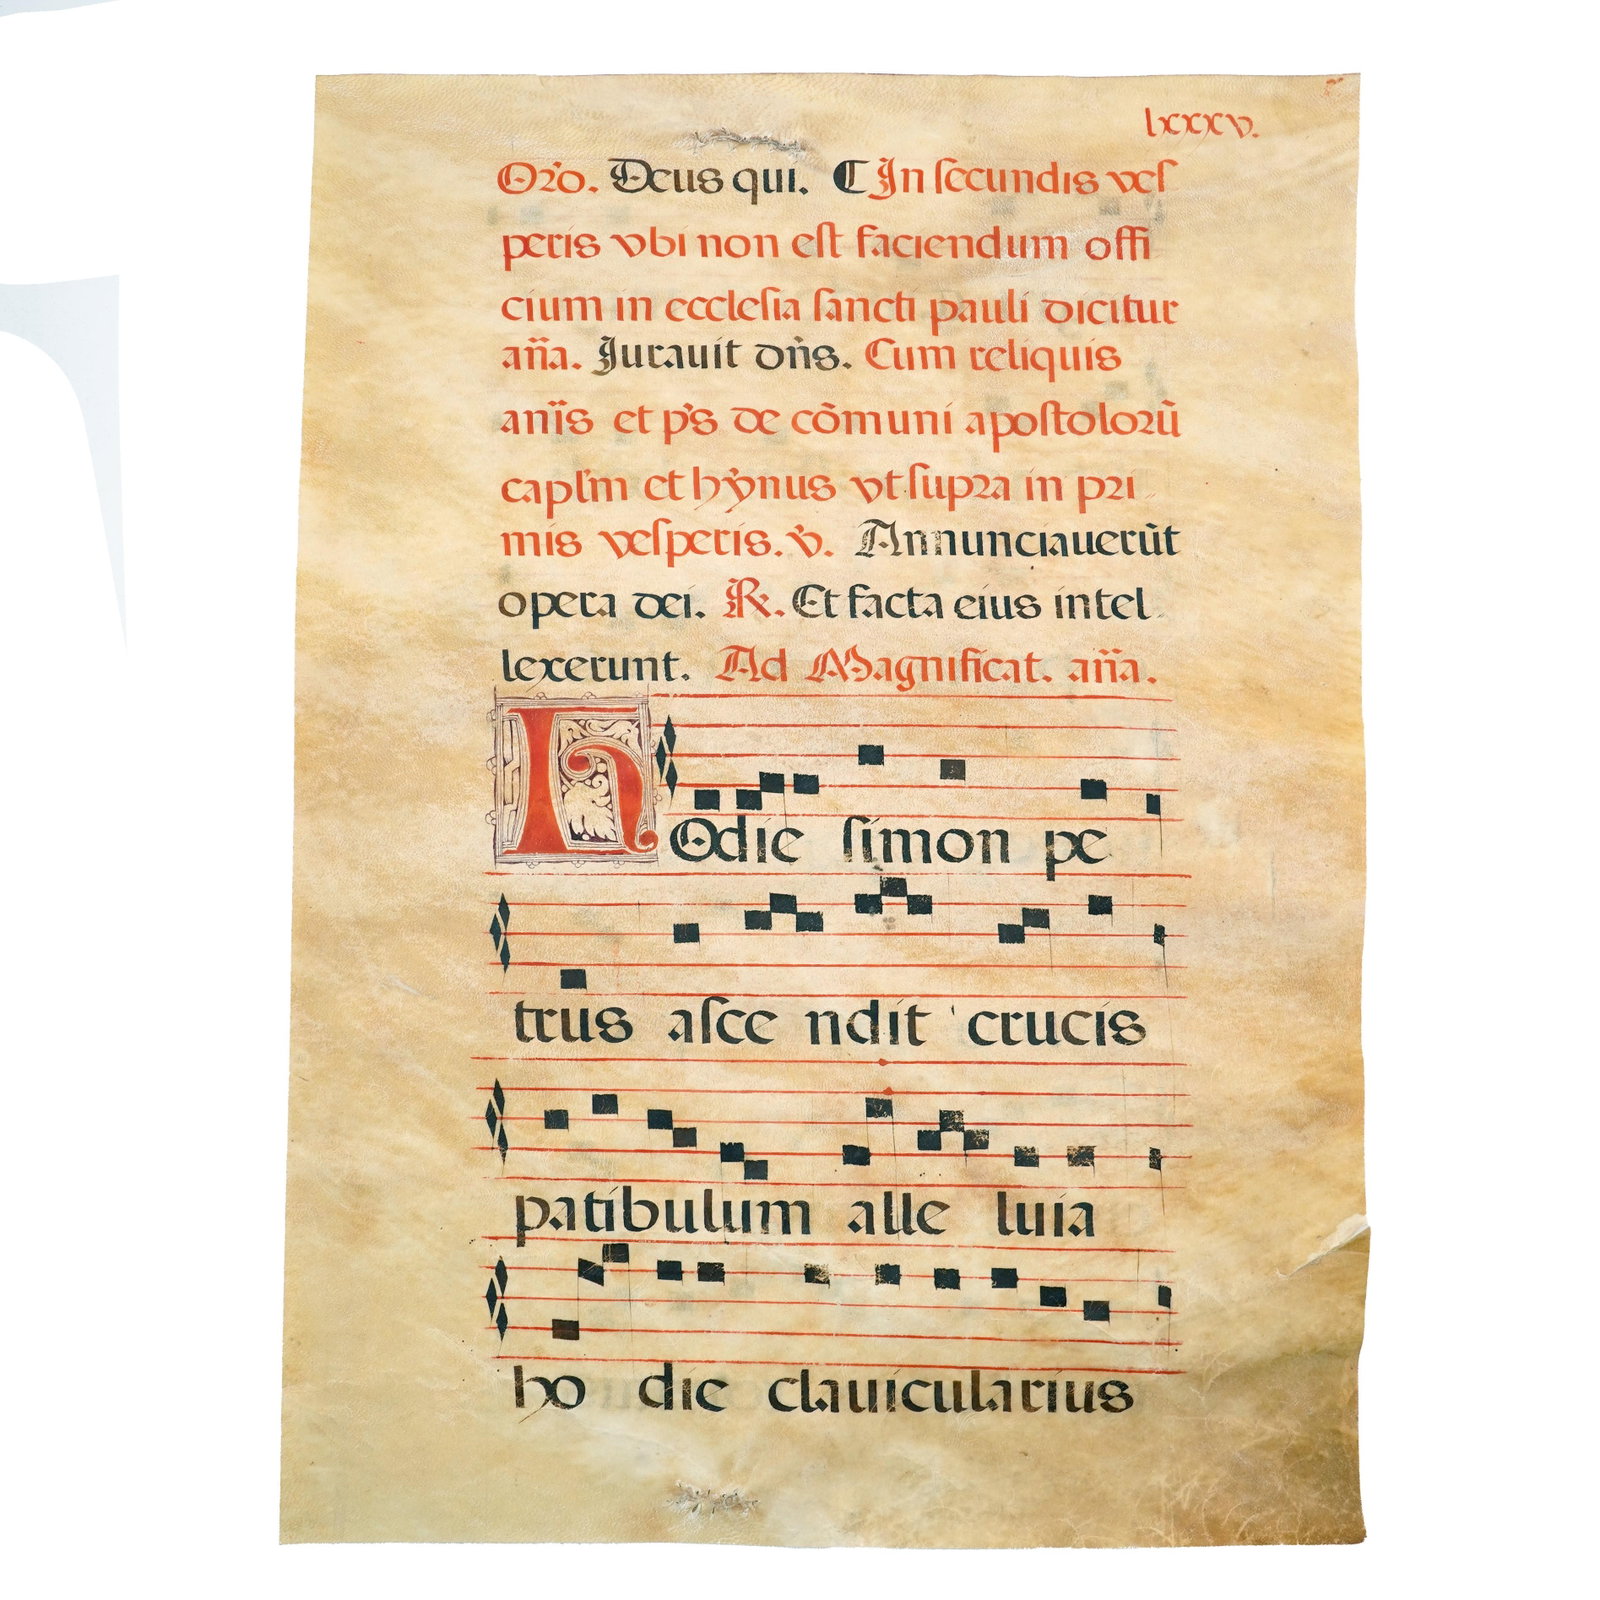 lxxxv.
Oro. Deus qui. ℂ In ſecundis veſ
peris vbi non eſt faciendum offi
cium in eccleſia ſancti pauli dicitur
an̄a. Jurauit dn̄s. Cum reliquis
an̄is et p̄s de cōmuni apoſtolorū
capl'm et hẏnus vt ſupra in pri
mis veſperis. v̇. Annunciauerūt
opera dei. R. Et facta eius intel
lexerunt. Ad Magnificat. an̄a.
hOdie ſimon pe
trus aſce ndit crucis
patibulum alle luia
ho die clauicularius